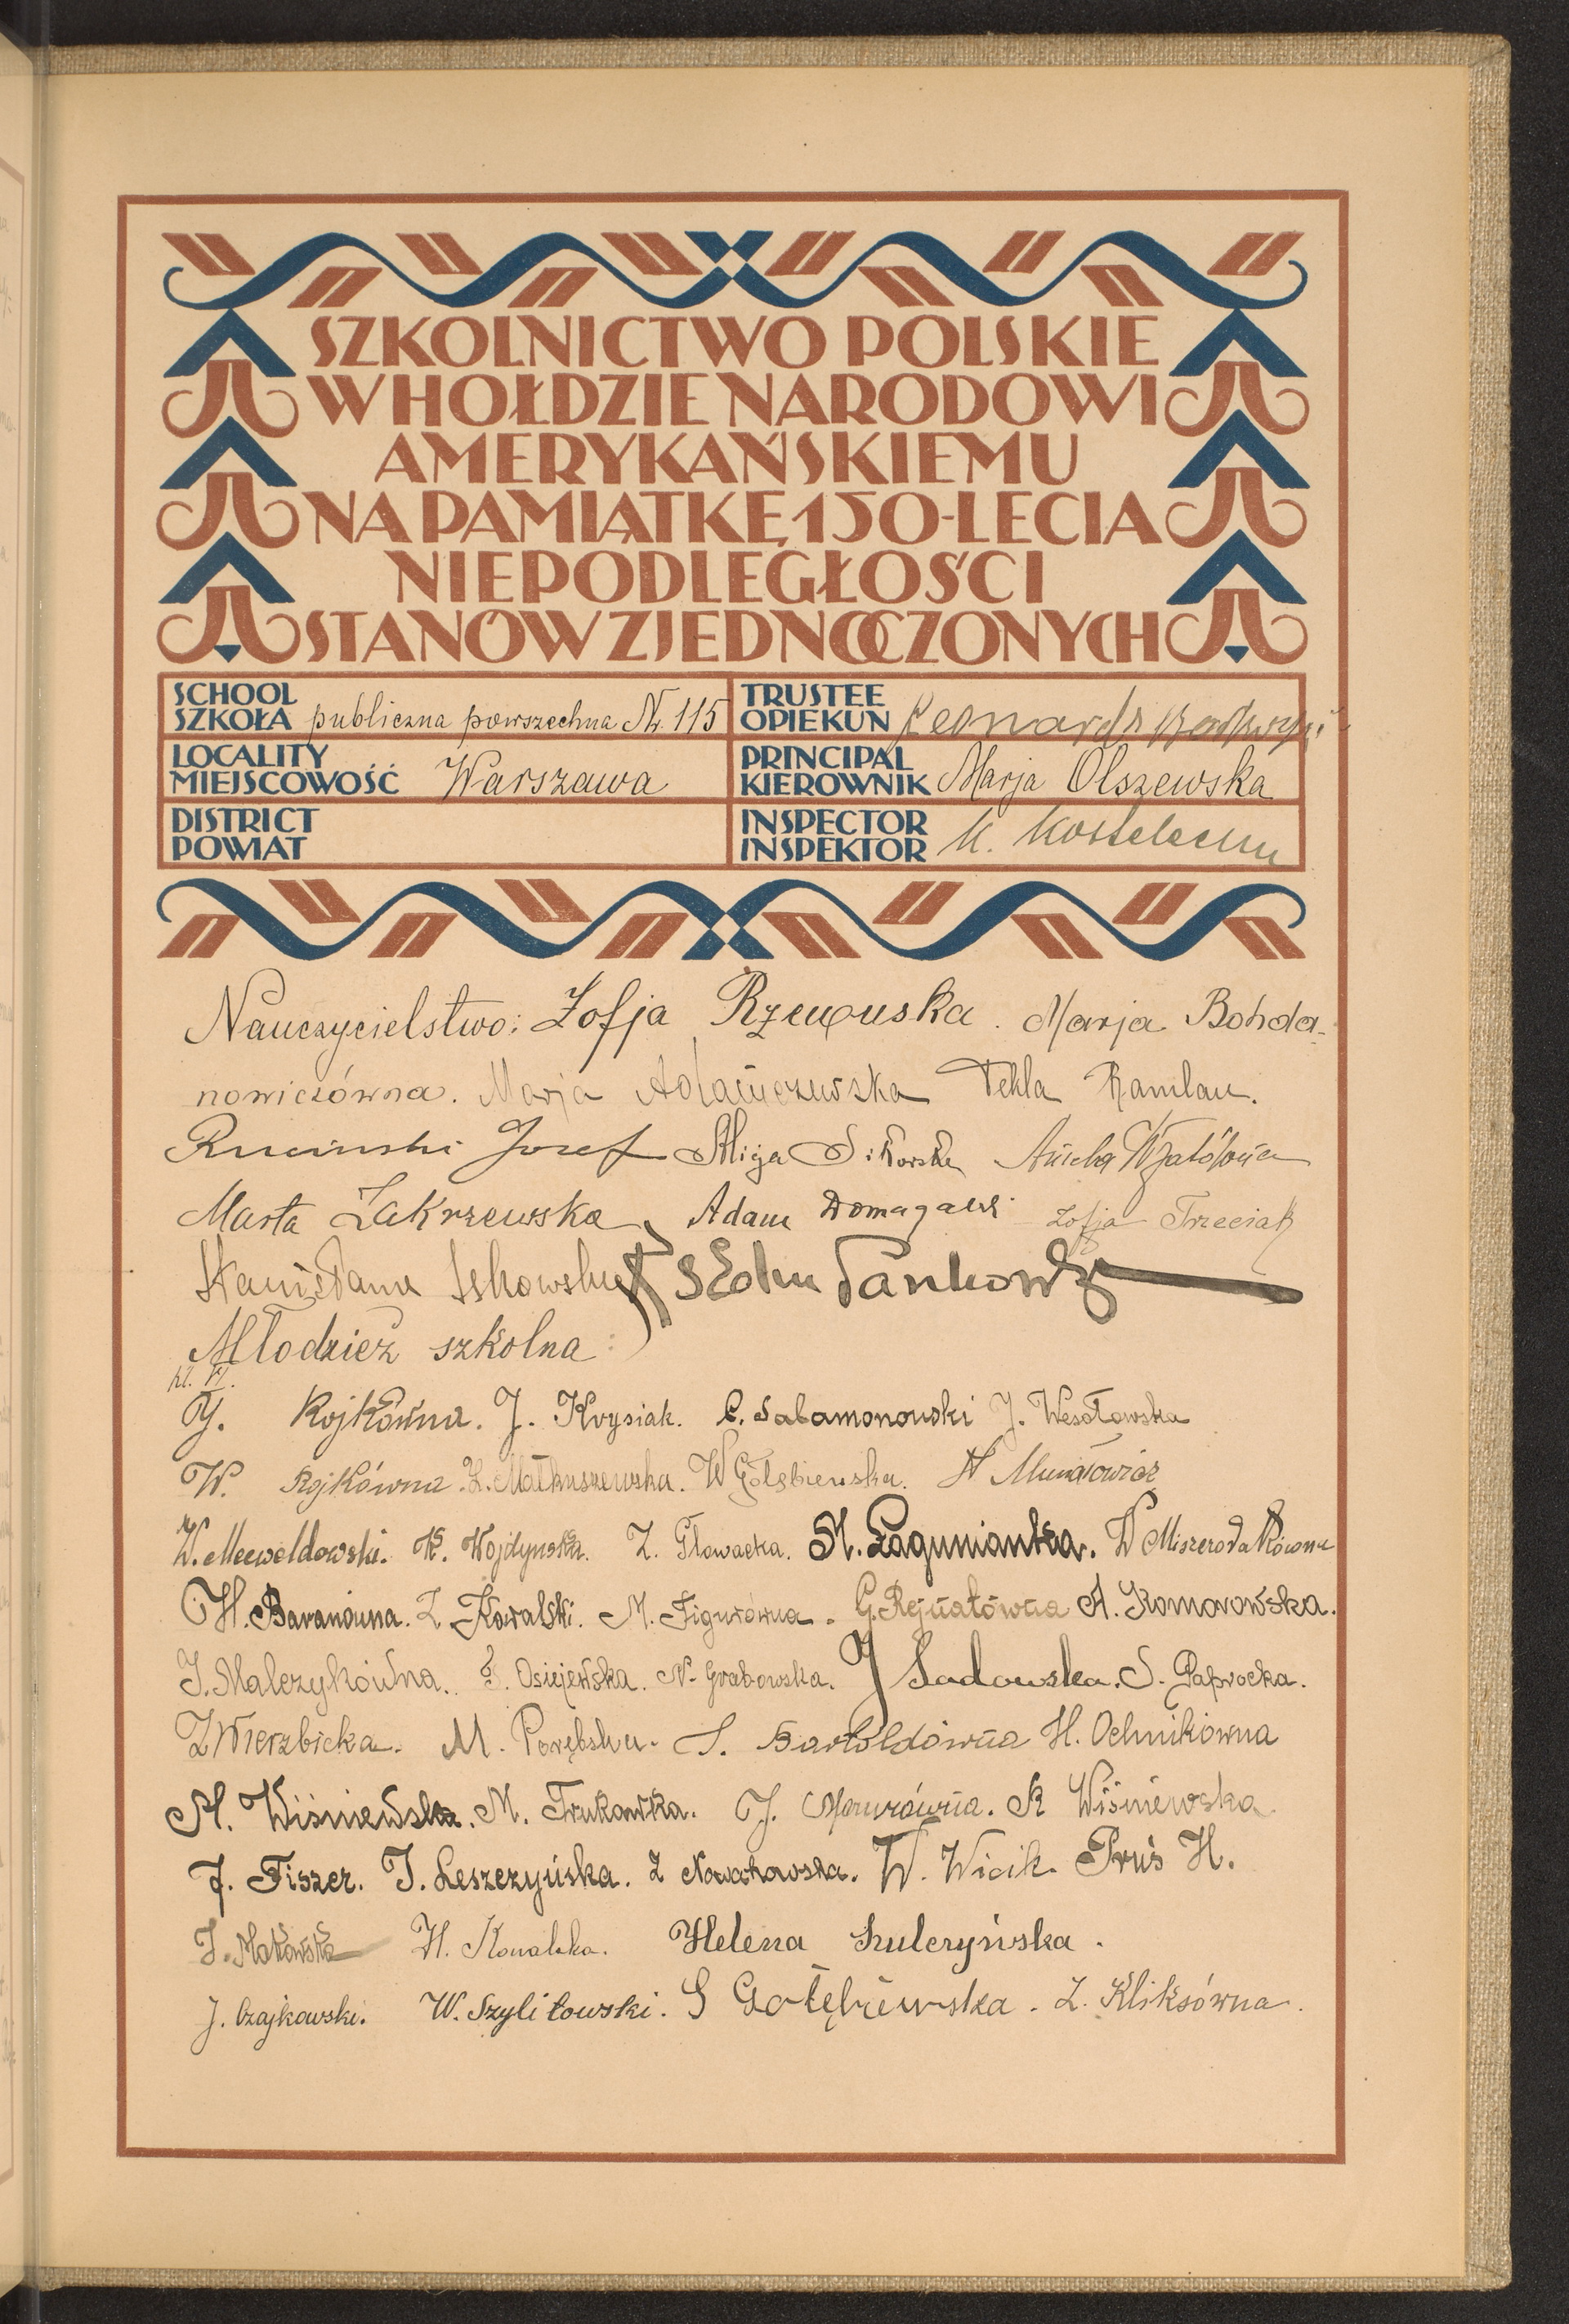 SZKOLNICTWO POLSKIE
W HOŁDZIE NARODOWI
AMERYKAŃSKIEMU
NA PAMIĄTKĘ 150-LECIA
NIEPODLEGŁOŚCI
STANÓW ZJEDNOCZONYCH
SCHOOL
SZKOŁA publiczna powszechna Nr. 115
TRUSTEE
OPIEKUN Leonard
LOCALITY
MIEJSCOWOŚĆ Warszawa
PRINCIPAL
KIEROWNIK Marja Olszewska
DISTRICT
POWIAT
INSPECTOR
INSPEKTOR K.
Nauczycielstwo: Zofja Rzewuska. Marja Bohda-
nowiczówna. Marja Adamczewska Tekla Ramlau.
Ruciński Józef Alicja Sikorska Aniela
Marta Zakrzewska, Adam Domagalski Zofja Trzeciak
Stanisława
Młodzież szkolna:
kl. VI.
J. Rojkówna. J. Krysiak. C. Salamonowski J. Wesołowska
W. Rojkówna. Z. Małkuszewska. W Gołębiewska. H
W. K. Wojdyńska. Z. Głowacka. M. Łagunianka. W Miszerodakówna
H. Baranówna. Z. Kowalski. M. Figurówna. G. Rejnatówna A. Komorowska.
J. Malczykówna. F. Osiejewska. N. Grabowska. J Sadowska. S. Paprocka.
Z Wierzbicka. M. Porębska. S. Bartoldówna H. Ochnikówna
M. Wiśniewska. M. Trukawka. J. Mazurówna. R Wiśniewska
J. Fiszer. J. Leszczyńska. Z Nowakowska. W. Wicik. Pruś H.
J. Makowska H. Kowalska. Helena Szulczyńska.
J. Czajkowski. W. Szyliłowski. S Gołębiewska. Z. Kliksówna.